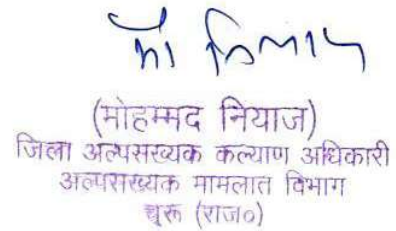 मो नियाज
(मोहम्मद नियाज)
जिला अल्पसख्यक कल्याण अधिकारी
अल्पसख्यक मामलात विभाग
चूरू (राज०)